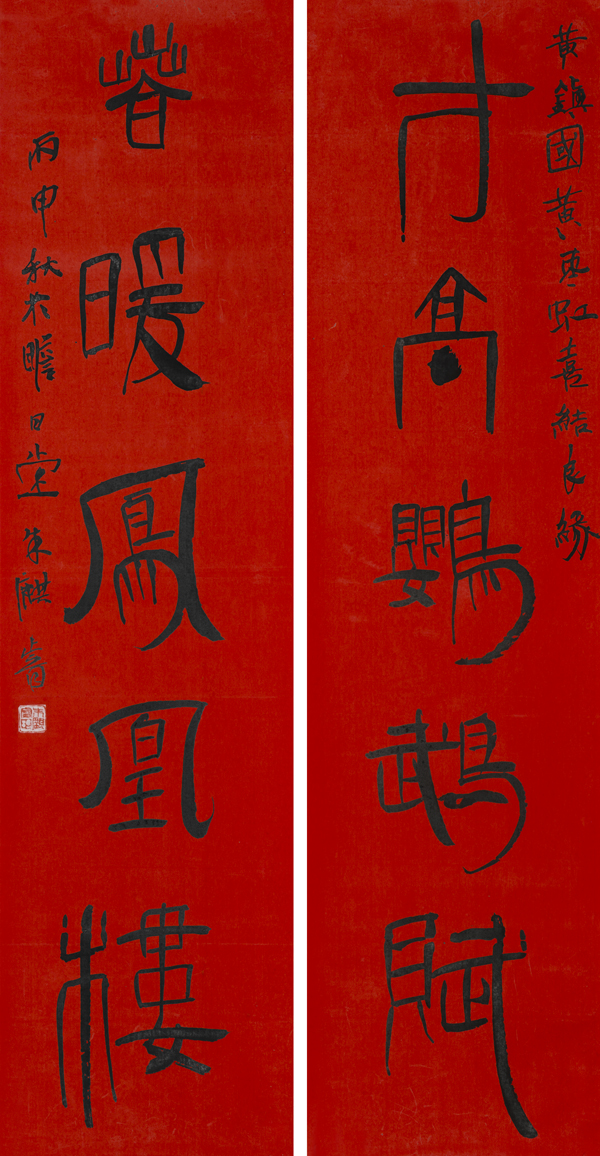 黃鎮國黃虹喜結良緣
才高鸚鵡賦
春暖鳳凰樓
丙申秋於瞻日堂朱麒書